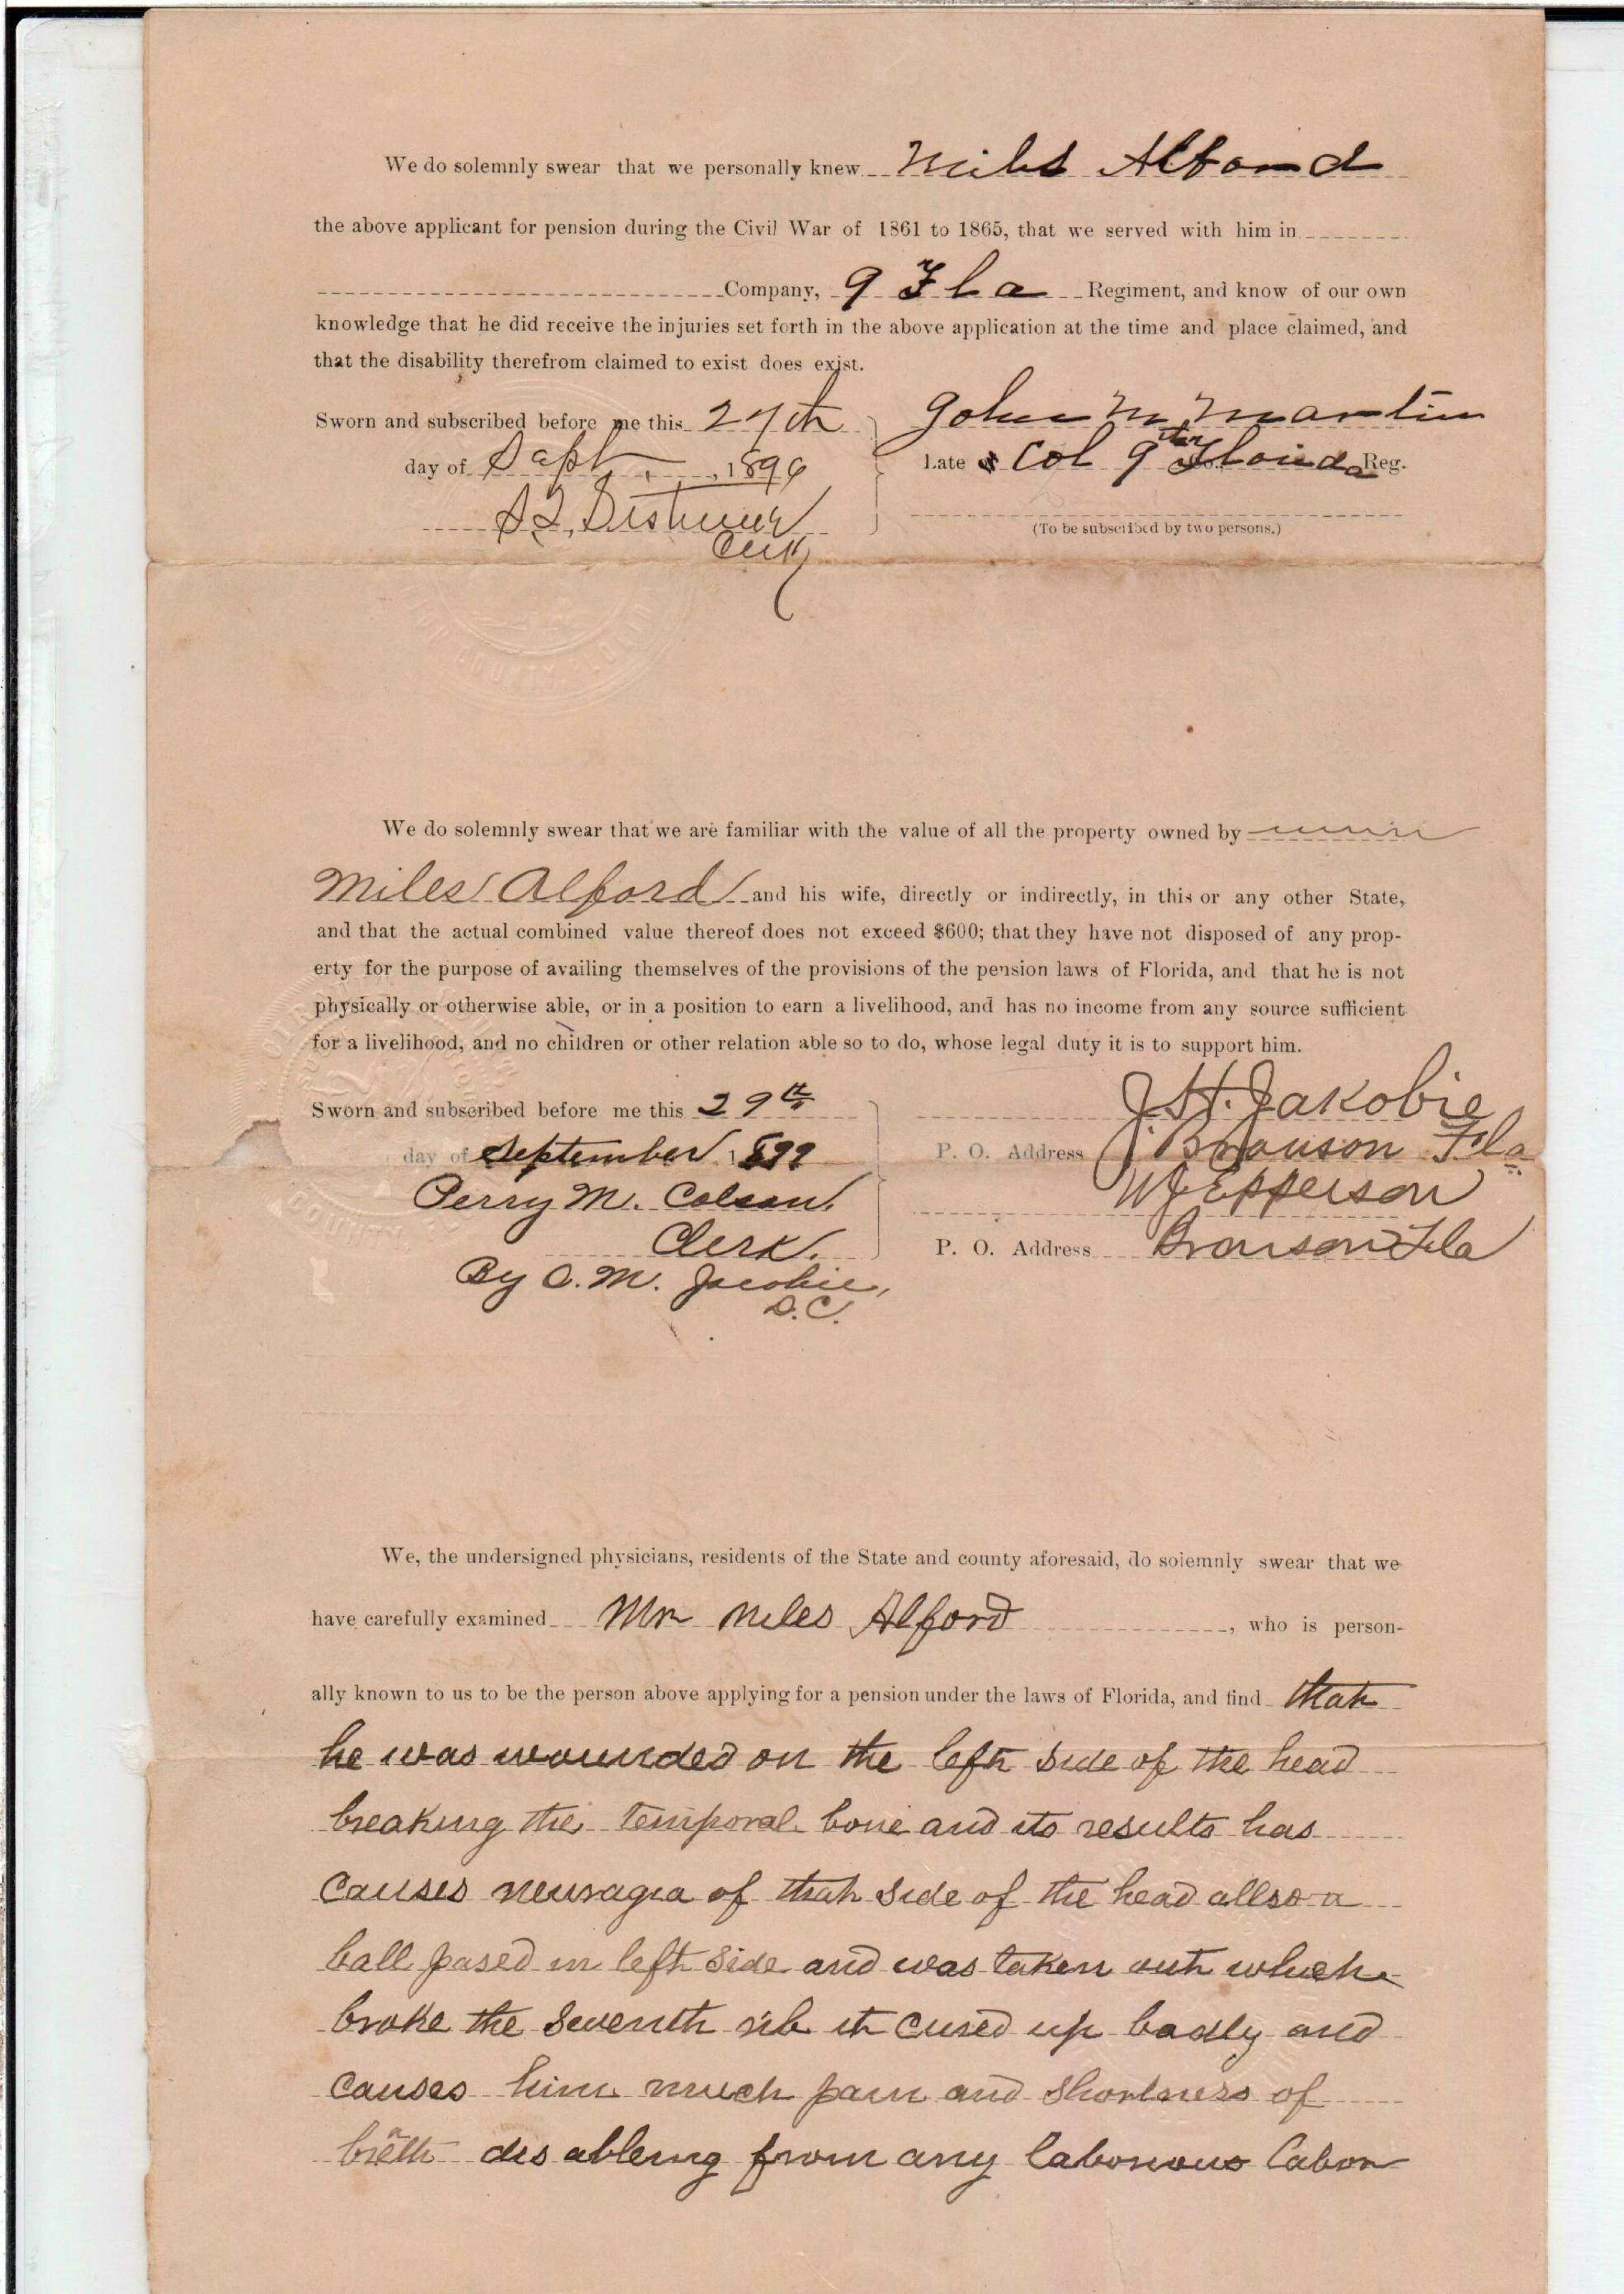 We do solemnly swear that we personally knew Miles Alford
the above applicant for pension during the Civil War of 1861 to 1865, that we served with him in
Company, 9 Fla Regiment, and know of our own
knowledge that he did receive the injuries set forth in the above application at the time and place claimed, and
that the disability therefrom claimed to exist does exist.
Sworn and subscribed before me this 27th
John M Martin
day of Sept, 1899
Late Col 9th Florida Reg.
Clerk
(To be subscribed by two persons.)
We do solemnly swear that we are familiar with the value of all the property owned by
Miles Alford and his wife, directly or indirectly, in this or any other State,
and that the actual combined value thereof does not exceed $600; that they have not disposed of any prop-
erty for the purpose of availing themselves of the provisions of the pension laws of Florida, and that he is not
physically or otherwise able, or in a position to earn a livelihood, and has no income from any source sufficient
for a livelihood, and no children or other relation able so to do, whose legal duty it is to support him.
Sworn and subscribed before me this 29th
J. H. Jakobie
day of September 1899
P. O. Address Bronson Fla
Perry M. Colson,
W J Epperson
Clerk.
P. O. Address Bronson Fla
By O. M. Jacobie,
D.C.
We, the undersigned physicians, residents of the State and county aforesaid, do solemnly swear that we
have carefully examined Mr Miles Alford, who is person-
ally known to us to be the person above applying for a pension under the laws of Florida, and find that
he was wounded on the left side of the head
breaking the temporal bone and its results has
causes neuragia of that side of the head allso a
ball pased in left side and was taken out which
broke the seventh rib it cured up badly and
causes him much pain and shortness of
breath disableing from any laborious labor